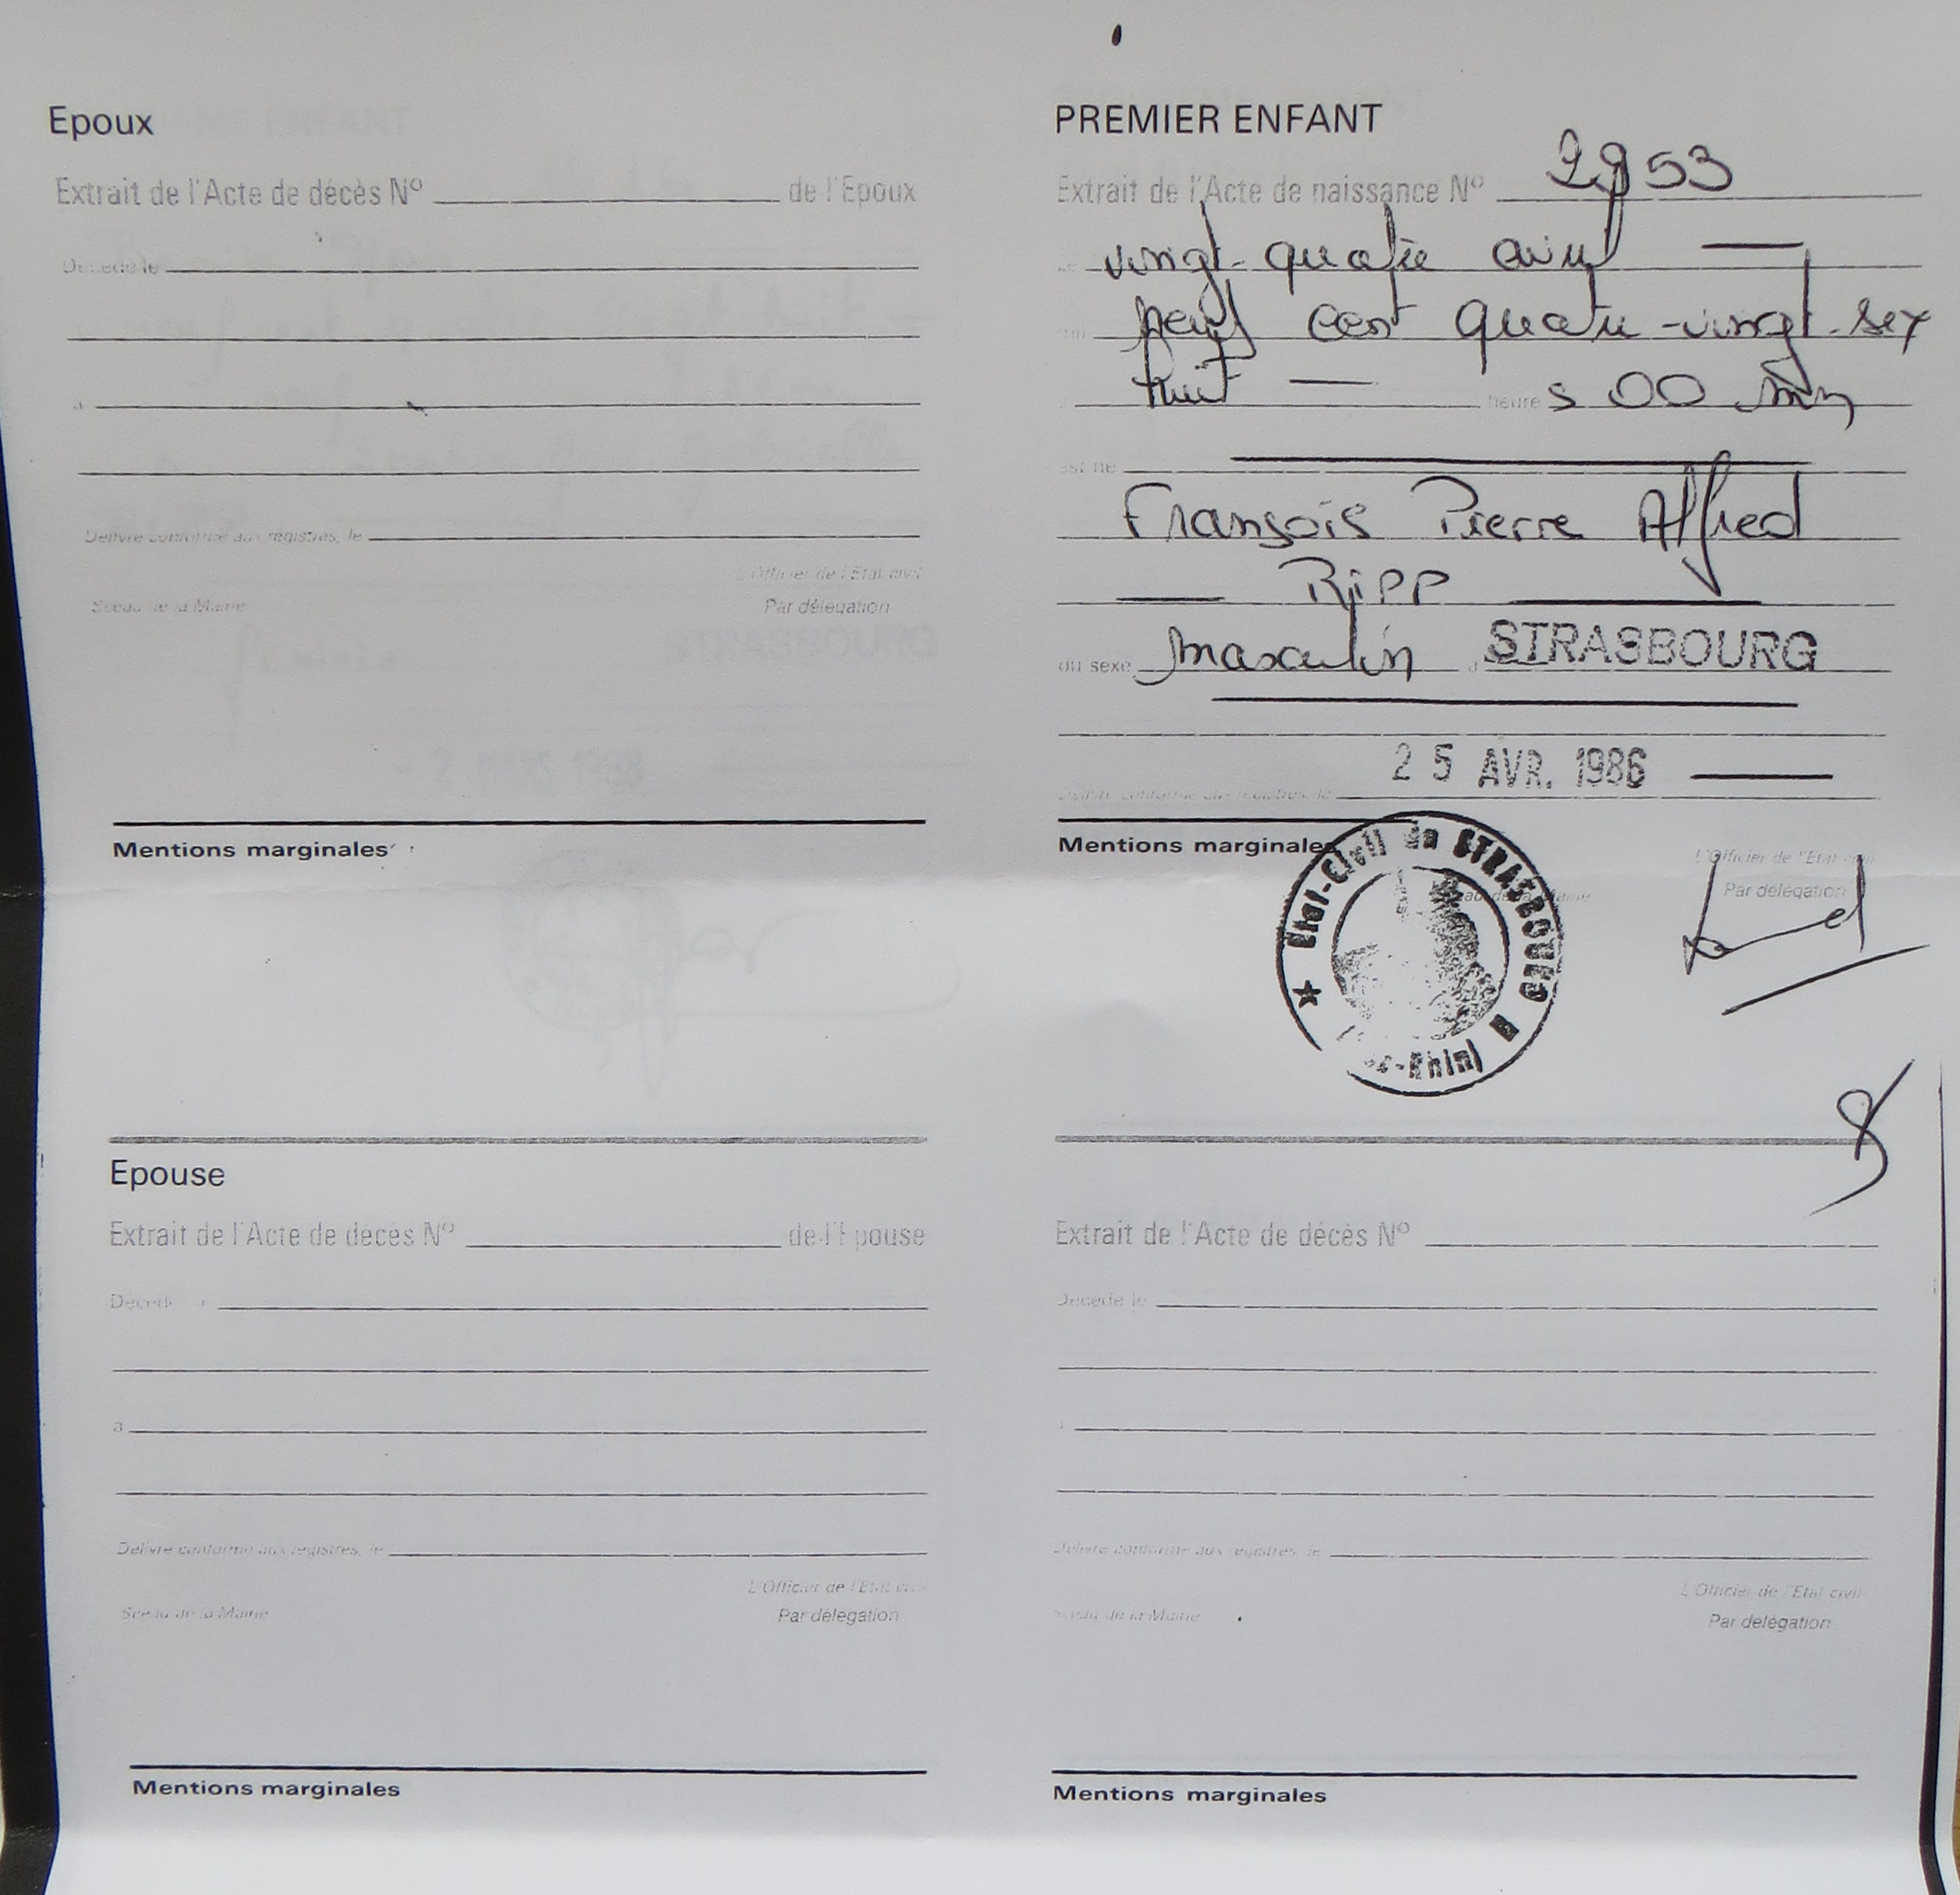 Epoux
Extrait de l'Acte de décès Nº de l'Epoux
Décédé le
à
Délivré conforme aux registres, le
L'Officier de l'Etat civil
Sceau de la Mairie Par délégation
Mentions marginales
Epouse
Extrait de l'Acte de décès Nº de l'Epouse
Décédé
à
Délivré conforme aux registres, le
L'Officier de l'Etat civil
Sceau de la Mairie Par délégation
Mentions marginales
PREMIER ENFANT
Extrait de l'Acte de naissance Nº 2953
vingt-quatre avril
neuf cent quatre-vingt-six
huit heures 00 min
est né
François Pierre Alfred
Ripp
du sexe masculin à STRASBOURG
25 AVR. 1986
Délivré conforme aux registres, le
Mentions marginales
L'Officier de l'Etat civil
Par délégation
Etat-Civil de STRASBOURG
-Rhin)
8
Extrait de l'Acte de décès Nº
Décédé le
Délivré conforme aux registres, le
L'Officier de l'Etat civil
Sceau de la Mairie Par délégation
Mentions marginales